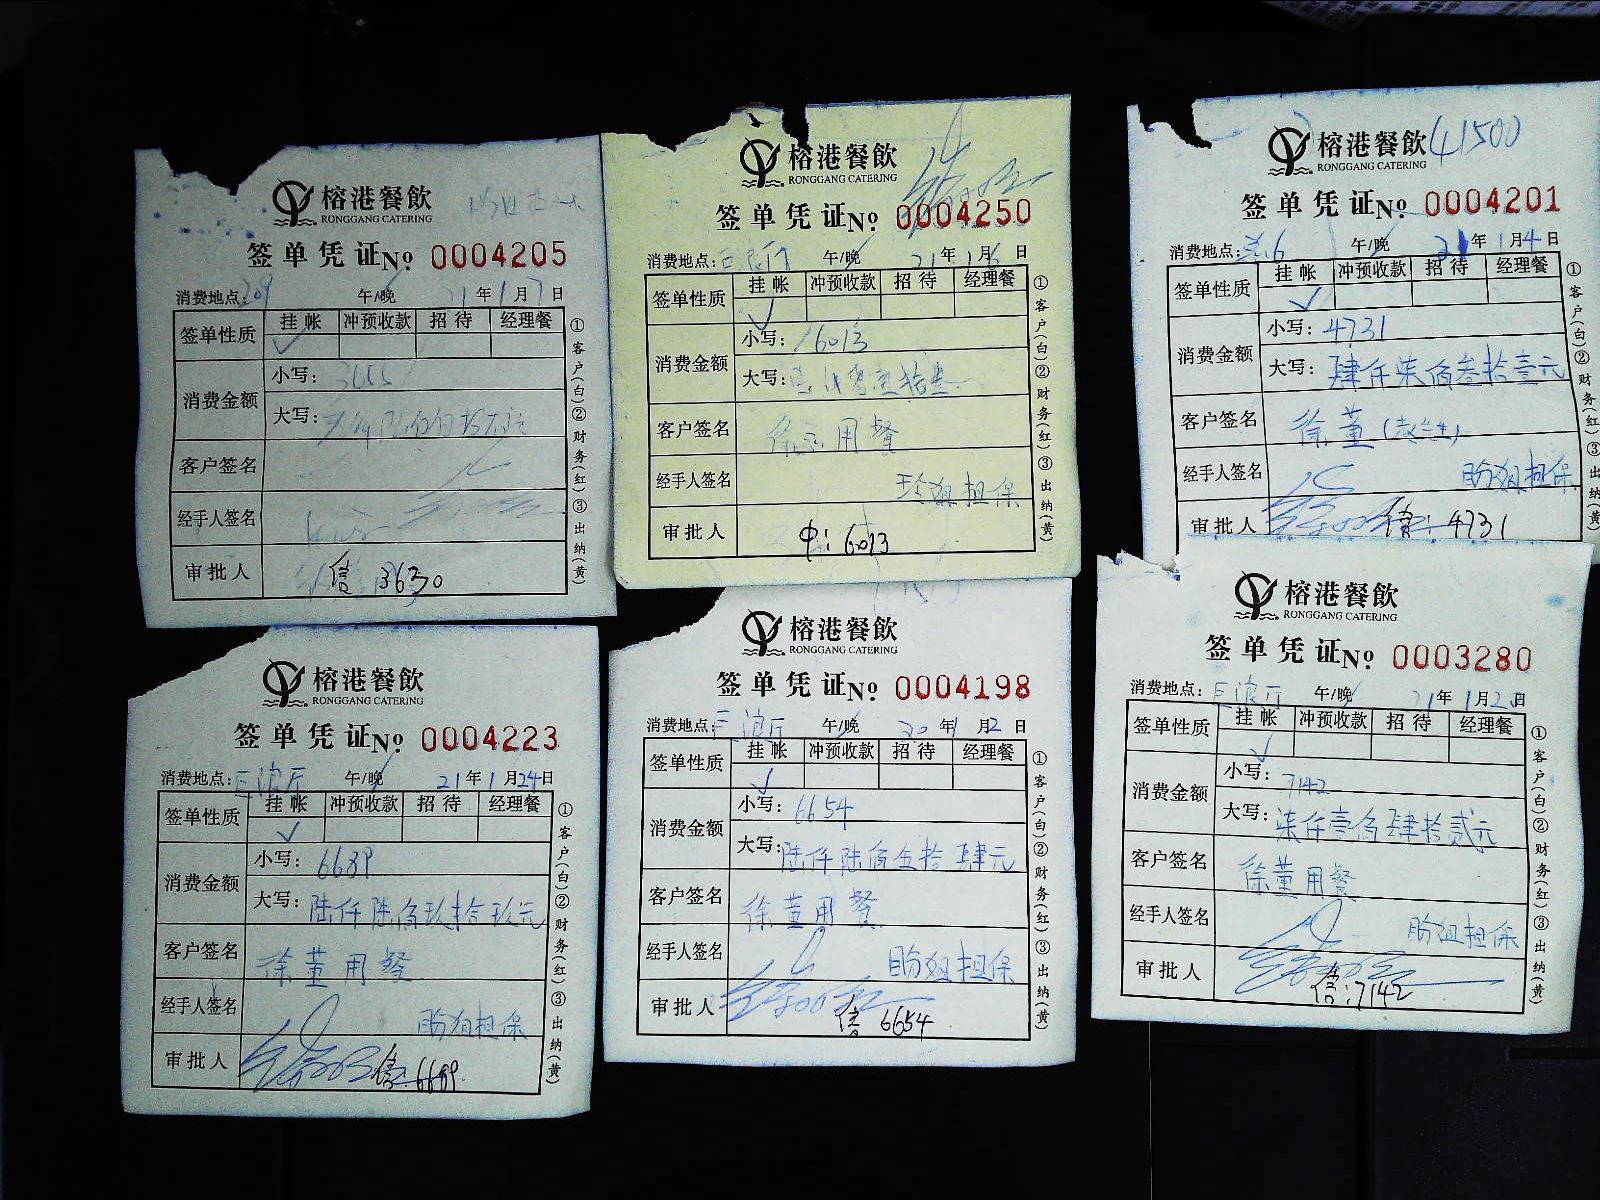 榕港餐飲
RONGGANG CATERING
签单凭证 No 0004205
消费地点: 209 午/晚 21年1月7日
签单性质 挂帐 冲预收款 招待 经理餐
消费金额
小写: 3655
大写:
客户签名
经手人签名
审批人 信 3630
①客户(白)②财务(红)③出纳(黄)
榕港餐飲
RONGGANG CATERING
签单凭证 No 0004250
消费地点: 午/晚 21年1月6日
签单性质 挂帐 冲预收款 招待 经理餐
消费金额
小写: 6013
大写:
客户签名 徐 用餐
经手人签名 担保
审批人 中: 6013
①客户(白)②财务(红)③出纳(黄)
榕港餐飲 41500
RONGGANG CATERING
签单凭证 No 0004201
消费地点: 午/晚 21年1月4日
签单性质 挂帐 冲预收款 招待 经理餐
消费金额
小写: 4731
大写: 肆仟柒佰叁拾壹元
客户签名 徐董
经手人签名 盼姐担保
审批人 信: 4731
①客户(白)②财务(红)③出纳(黄)
榕港餐飲
RONGGANG CATERING
签单凭证 No 0004223
消费地点: 巨浪厅 午/晚 21年1月24日
签单性质 挂帐 冲预收款 招待 经理餐
消费金额
小写: 6699
大写: 陆仟陆佰玖拾玖元
客户签名 徐董用餐
经手人签名 盼姐担保
审批人 信: 6699
①客户(白)②财务(红)③出纳(黄)
榕港餐飲
RONGGANG CATERING
签单凭证 No 0004198
消费地点: 巨浪厅 午/晚 20年1月2日
签单性质 挂帐 冲预收款 招待 经理餐
消费金额
小写: 6654
大写: 陆仟陆佰伍拾肆元
客户签名 徐董用餐
经手人签名 盼姐担保
审批人 信 6654
①客户(白)②财务(红)③出纳(黄)
榕港餐飲
RONGGANG CATERING
签单凭证 No 0003280
消费地点: 巨浪厅 午/晚 21年1月20日
签单性质 挂帐 冲预收款 招待 经理餐
消费金额
小写: 7142
大写: 柒仟壹佰肆拾贰元
客户签名 徐董用餐
经手人签名 盼姐担保
审批人 信: 7142
①客户(白)②财务(红)③出纳(黄)